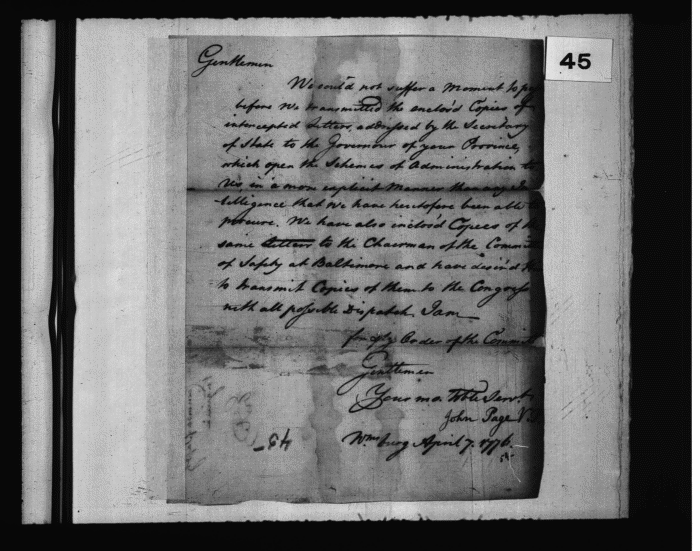 45
Gentlemen
We could not suffer a Moment to pa
before We transmitted the enclos'd Copies of
intercepted Letters, addressed by the Secretary
of State to the Governour of your Province,
which open the Schemes of Administration to
Us, in a more explicit Manner than any In
telligence that We have heretofore been able
procure. We have also inclos'd Copies of
same Letters to the Chairman of the Commit
of Safety at Baltimore and have desir'd
to transmit Copies of them to the Congress
with all possible Dispatch. I am
Order of the Committ
Gentlemen
Your mo. Obt Servt
John Page V.
Wmsburg April 7. 1776.
45